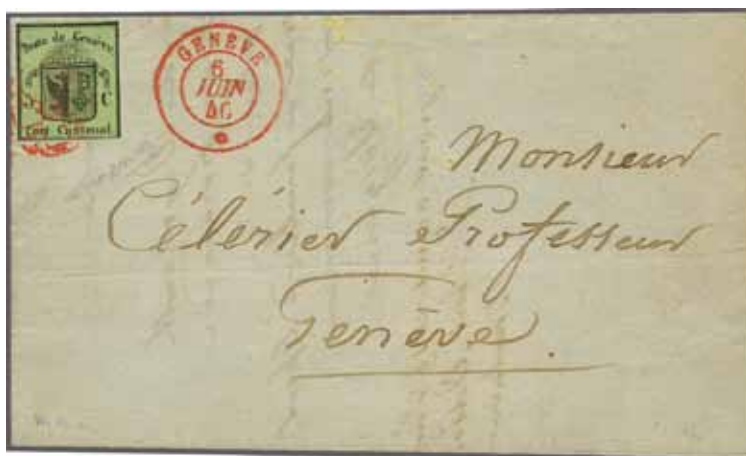 Poste de Genève
5 C
Port Cantonal
GENÈVE
6
JUIN
46
Monsieur
Célérier Professeur
Genève.